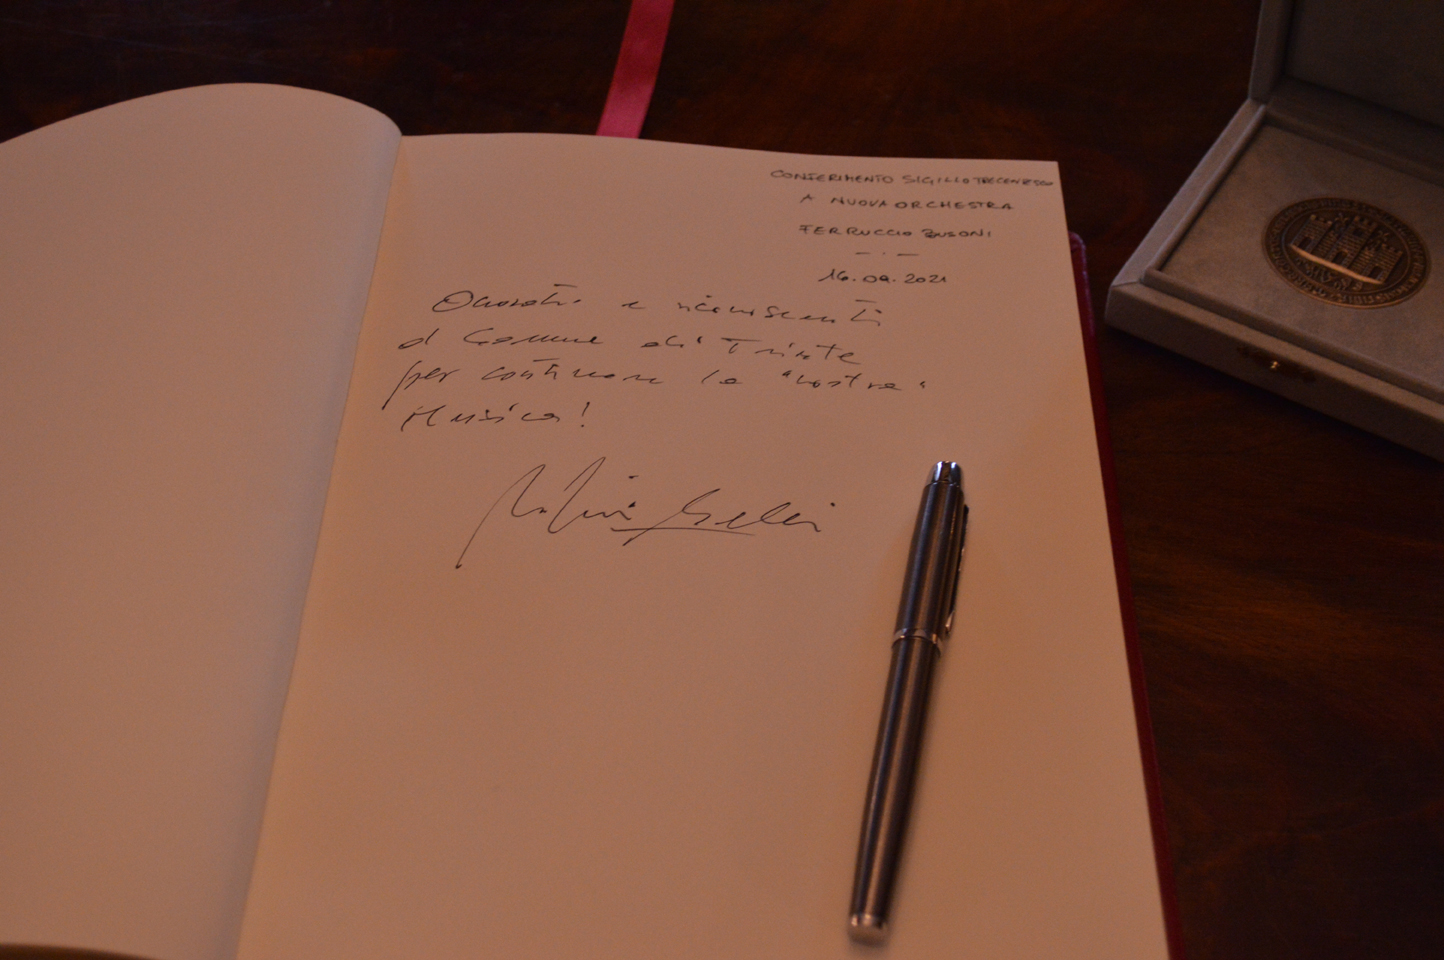 CONFERIMENTO SIGILLO TRECENTESCO
A NUOVA ORCHESTRA
FERRUCCIO BUSONI
16.09.2021
Onorati e riconoscenti
al Comune di Trieste
per continuare la "nostra"
Musica!